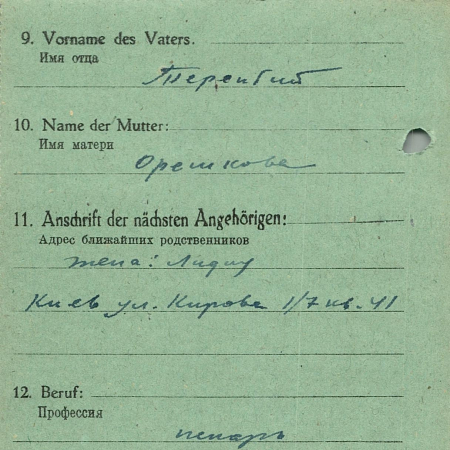 9. Vorname des Vaters.
Имя отца
Терентий
10. Name der Mutter:
Имя матери
Орешкова
11. Anschrift der nächsten Angehörigen:
Адрес ближайших родственников
жена: Лидия
Киев ул. Кирова 1/7 кв. 41
12. Beruf:
Профессия
пекарь